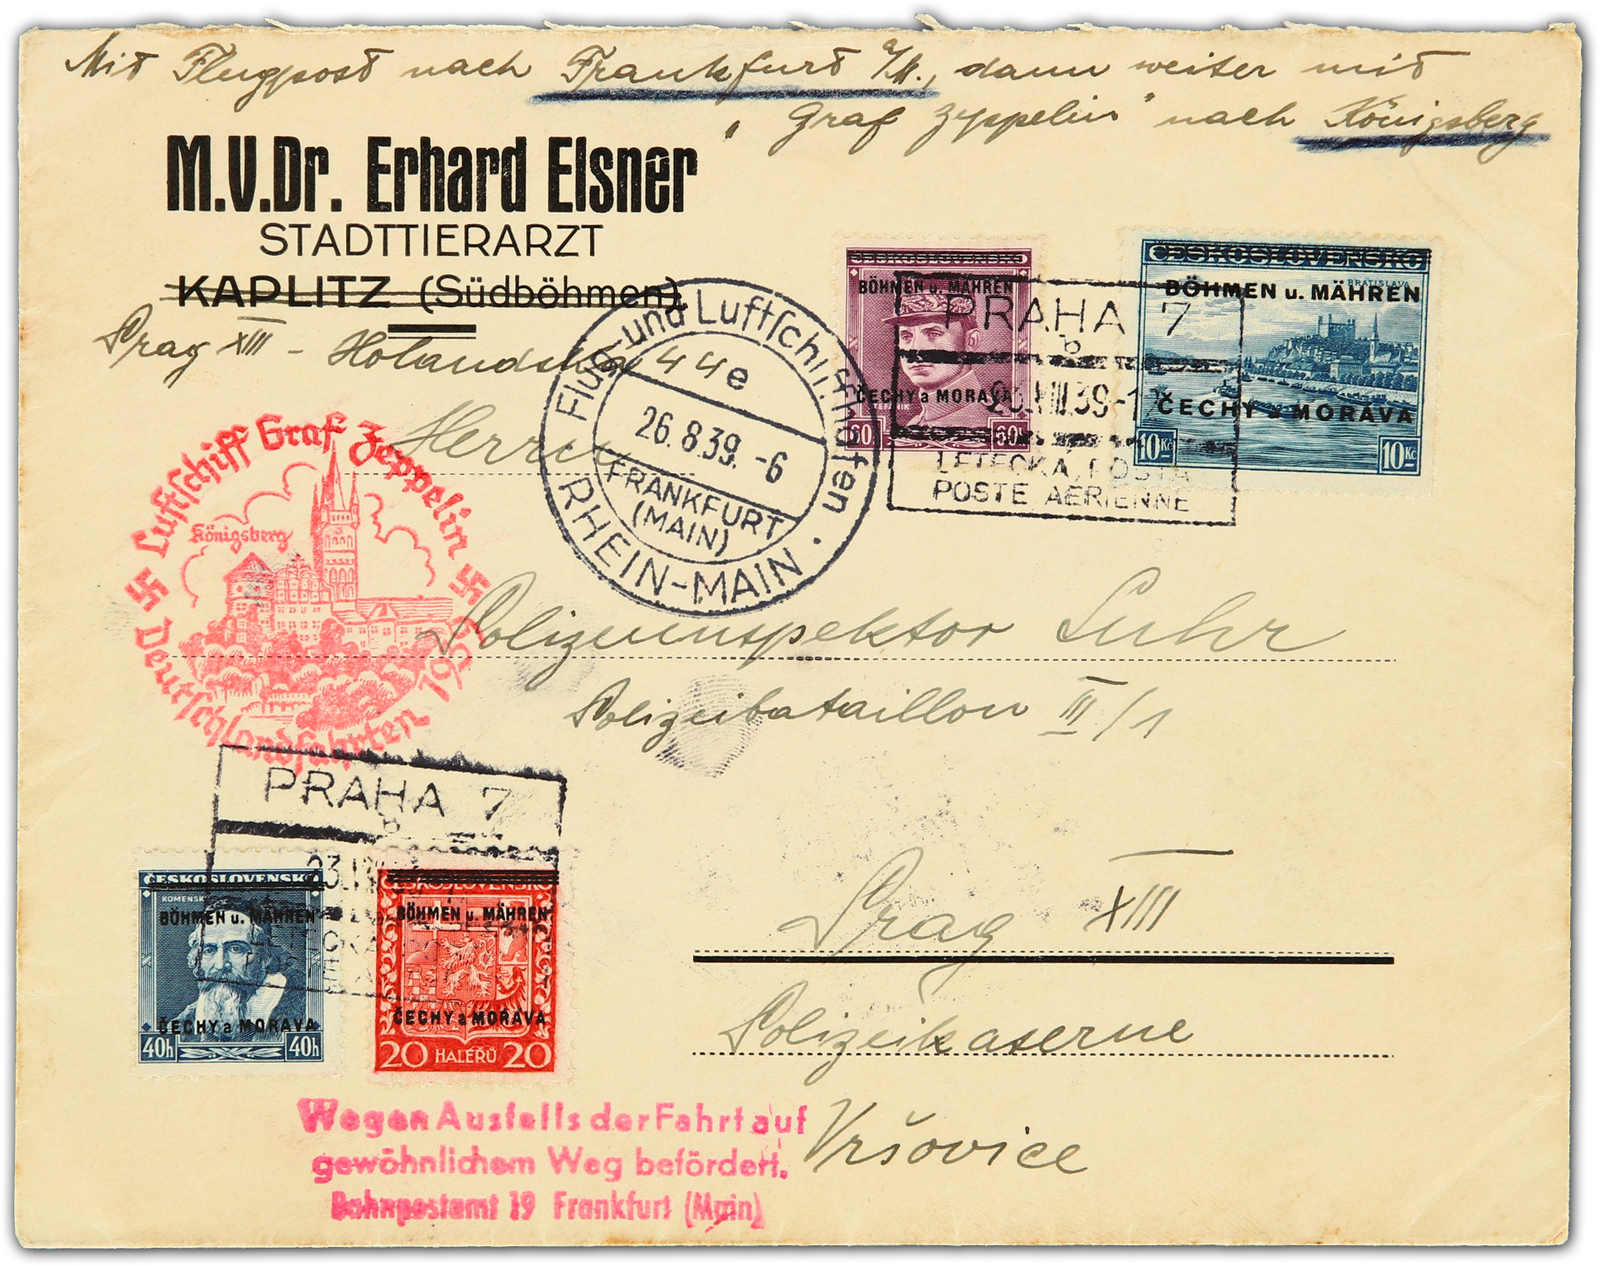 Mit Flugpost nach Frankfurt a/M., dann weiter mit
„Graf Zeppelin" nach Königsberg
M.V.Dr. Erhard Elsner
STADTTIERARZT
KAPLITZ (Südböhmen)
Prag XIII - 44
Flug- und Luftschiffhafen
e
26.8.39. -6
FRANKFURT
(MAIN)
RHEIN-MAIN
ČESKOSLOVENSKO
BÖHMEN u. MÄHREN
ČECHY a MORAVA
60 60h
ČESKOSLOVENSKO
BRATISLAVA
BÖHMEN u. MÄHREN
ČECHY a MORAVA
10Kč 10Kč
PRAHA 7
b
23.VIII.39-
LETECKÁ POŠTA
POSTE AERIENNE
Herrn
Luftschiff Graf Zeppelin
Königsberg
Deutschlandfahrten 1939
Polizeiinspektor Luhr
Polizeibataillon III/1
Prag XIII
Polizeikaserne
Vršovice
PRAHA 7
b
ČESKOSLOVENSKO
KOMENSKÝ
BÖHMEN u. MÄHREN
ČECHY a MORAVA
40h 40h
ČESKOSLOVENSKO
BÖHMEN u. MÄHREN
ČECHY a MORAVA
20 HALÉŘŮ 20
Wegen Ausfalls der Fahrt auf
gewöhnlichem Weg befördert.
Bahnpostamt 19 Frankfurt (Main)